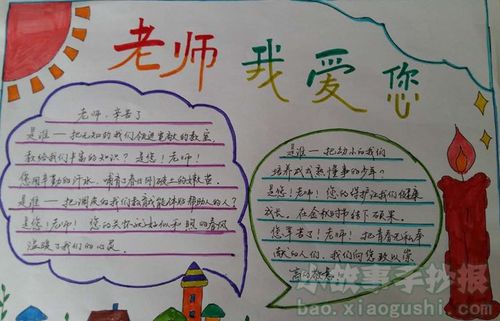 老师我爱您
老师，辛苦了
是谁一把无知的我们领进宽敞的教室，
教给我们丰富的知识？是您！老师！
您用辛勤的汗水，哺育了春日刚破土的嫩苗。
是谁一把调皮的我们教育成能体贴帮助人的人？
是您！老师！您的关怀就好似和煦的春风
温暖了我们的心灵。
是谁一把幼小的我们
培养成成熟懂事的少年？
是您！老师！您的保护让我们健康
成长。在金秋时节结下硕果。
您辛苦了！老师！把青春无私奉
献的人们，我们向您致以崇
高的敬意
小故事手抄报
bao.xiaogushi.com